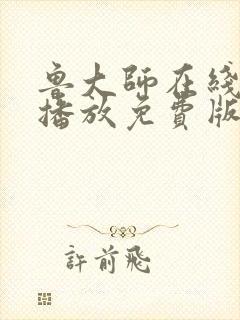 魯大師在綫
播放免費版
許前飛